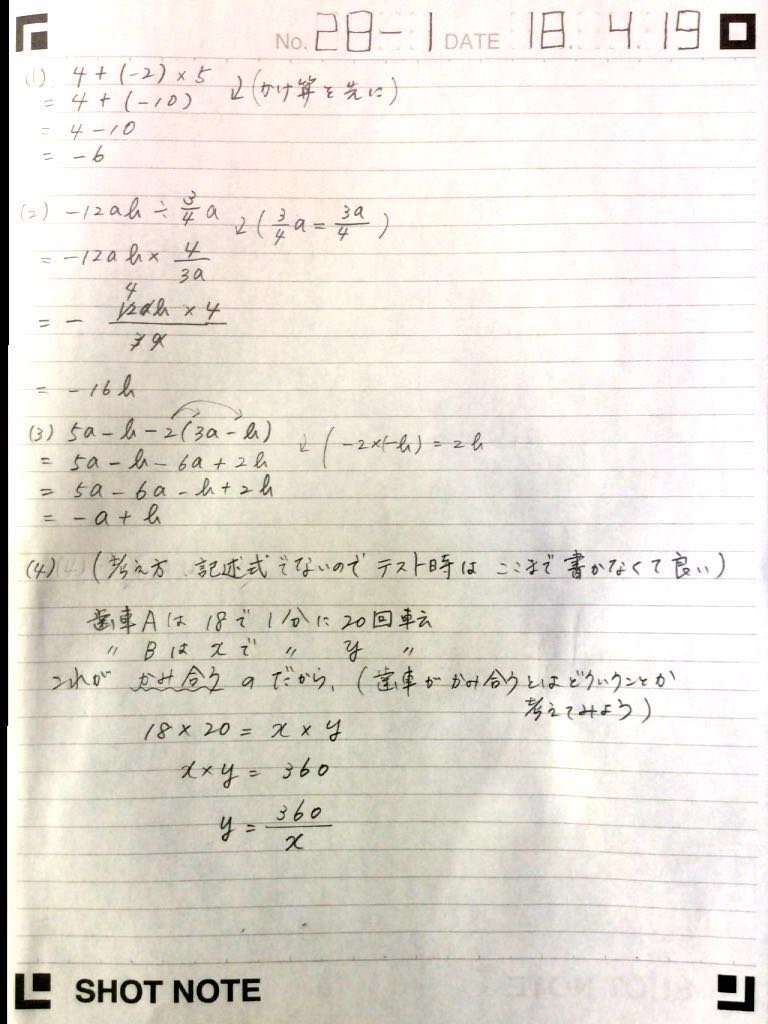 No. 28-1 DATE 18. 4. 19
(1) 4+(-2)×5
= 4+(-10) ↓(かけ算を先に)
= 4-10
= -6
(2) -12ab ÷ 3/4 a ↓(3/4 a = 3a/4)
= -12ab × 4/3a
4
= - 12ab × 4 / 3a
= -16b
(3) 5a-b-2(3a-b) ↓(-2×(-b) = 2b
= 5a-b-6a+2b
= 5a-6a-b+2b
= -a+b
(4) (考え方 記述式でないので テスト時は ここまで書かなくて良い)
歯車Aは 18で 1分に 20回転
〃 Bは xで 〃 y 〃
これが かみ合う のだから、(歯車がかみ合うとはどういうことか
考えてみよう)
18×20 = x×y
x×y = 360
y = 360/x
SHOT NOTE